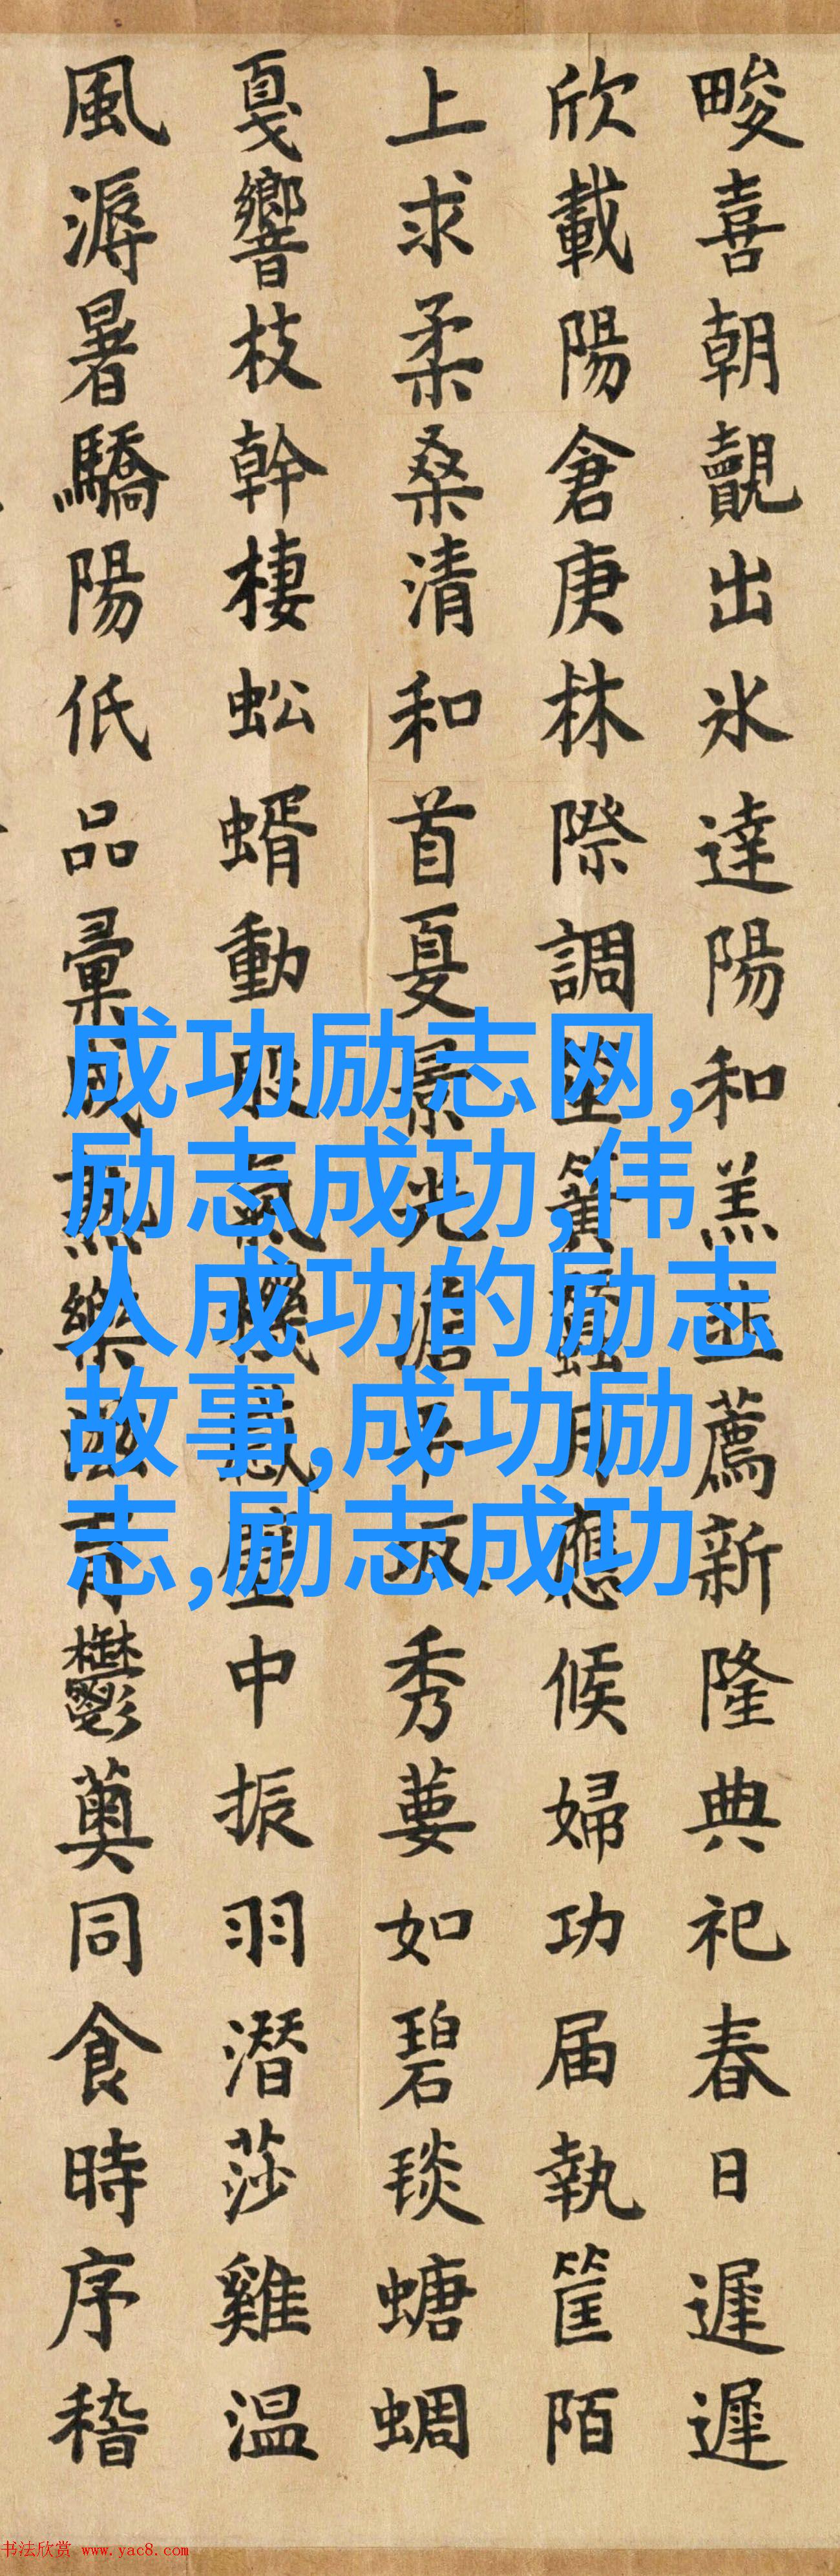 畯喜朝觀出氷達陽和羔薦新隆典祀春日遲遲
欣載陽倉庚林際調簧蠶月應候婦功届執筐陌
上求柔桑清和首夏景光秀葽如碧琰螗蜩
戛響枝幹棲蚣蝑動股氣機感中振羽潛莎雞温
風溽暑驕陽低品彙咸熟樂滋育鬱薁同食時序稽
成功励志网,
励志成功,伟
人成功的励志
故事,成功励
志,励志成功
书法欣赏 www.yac8.com